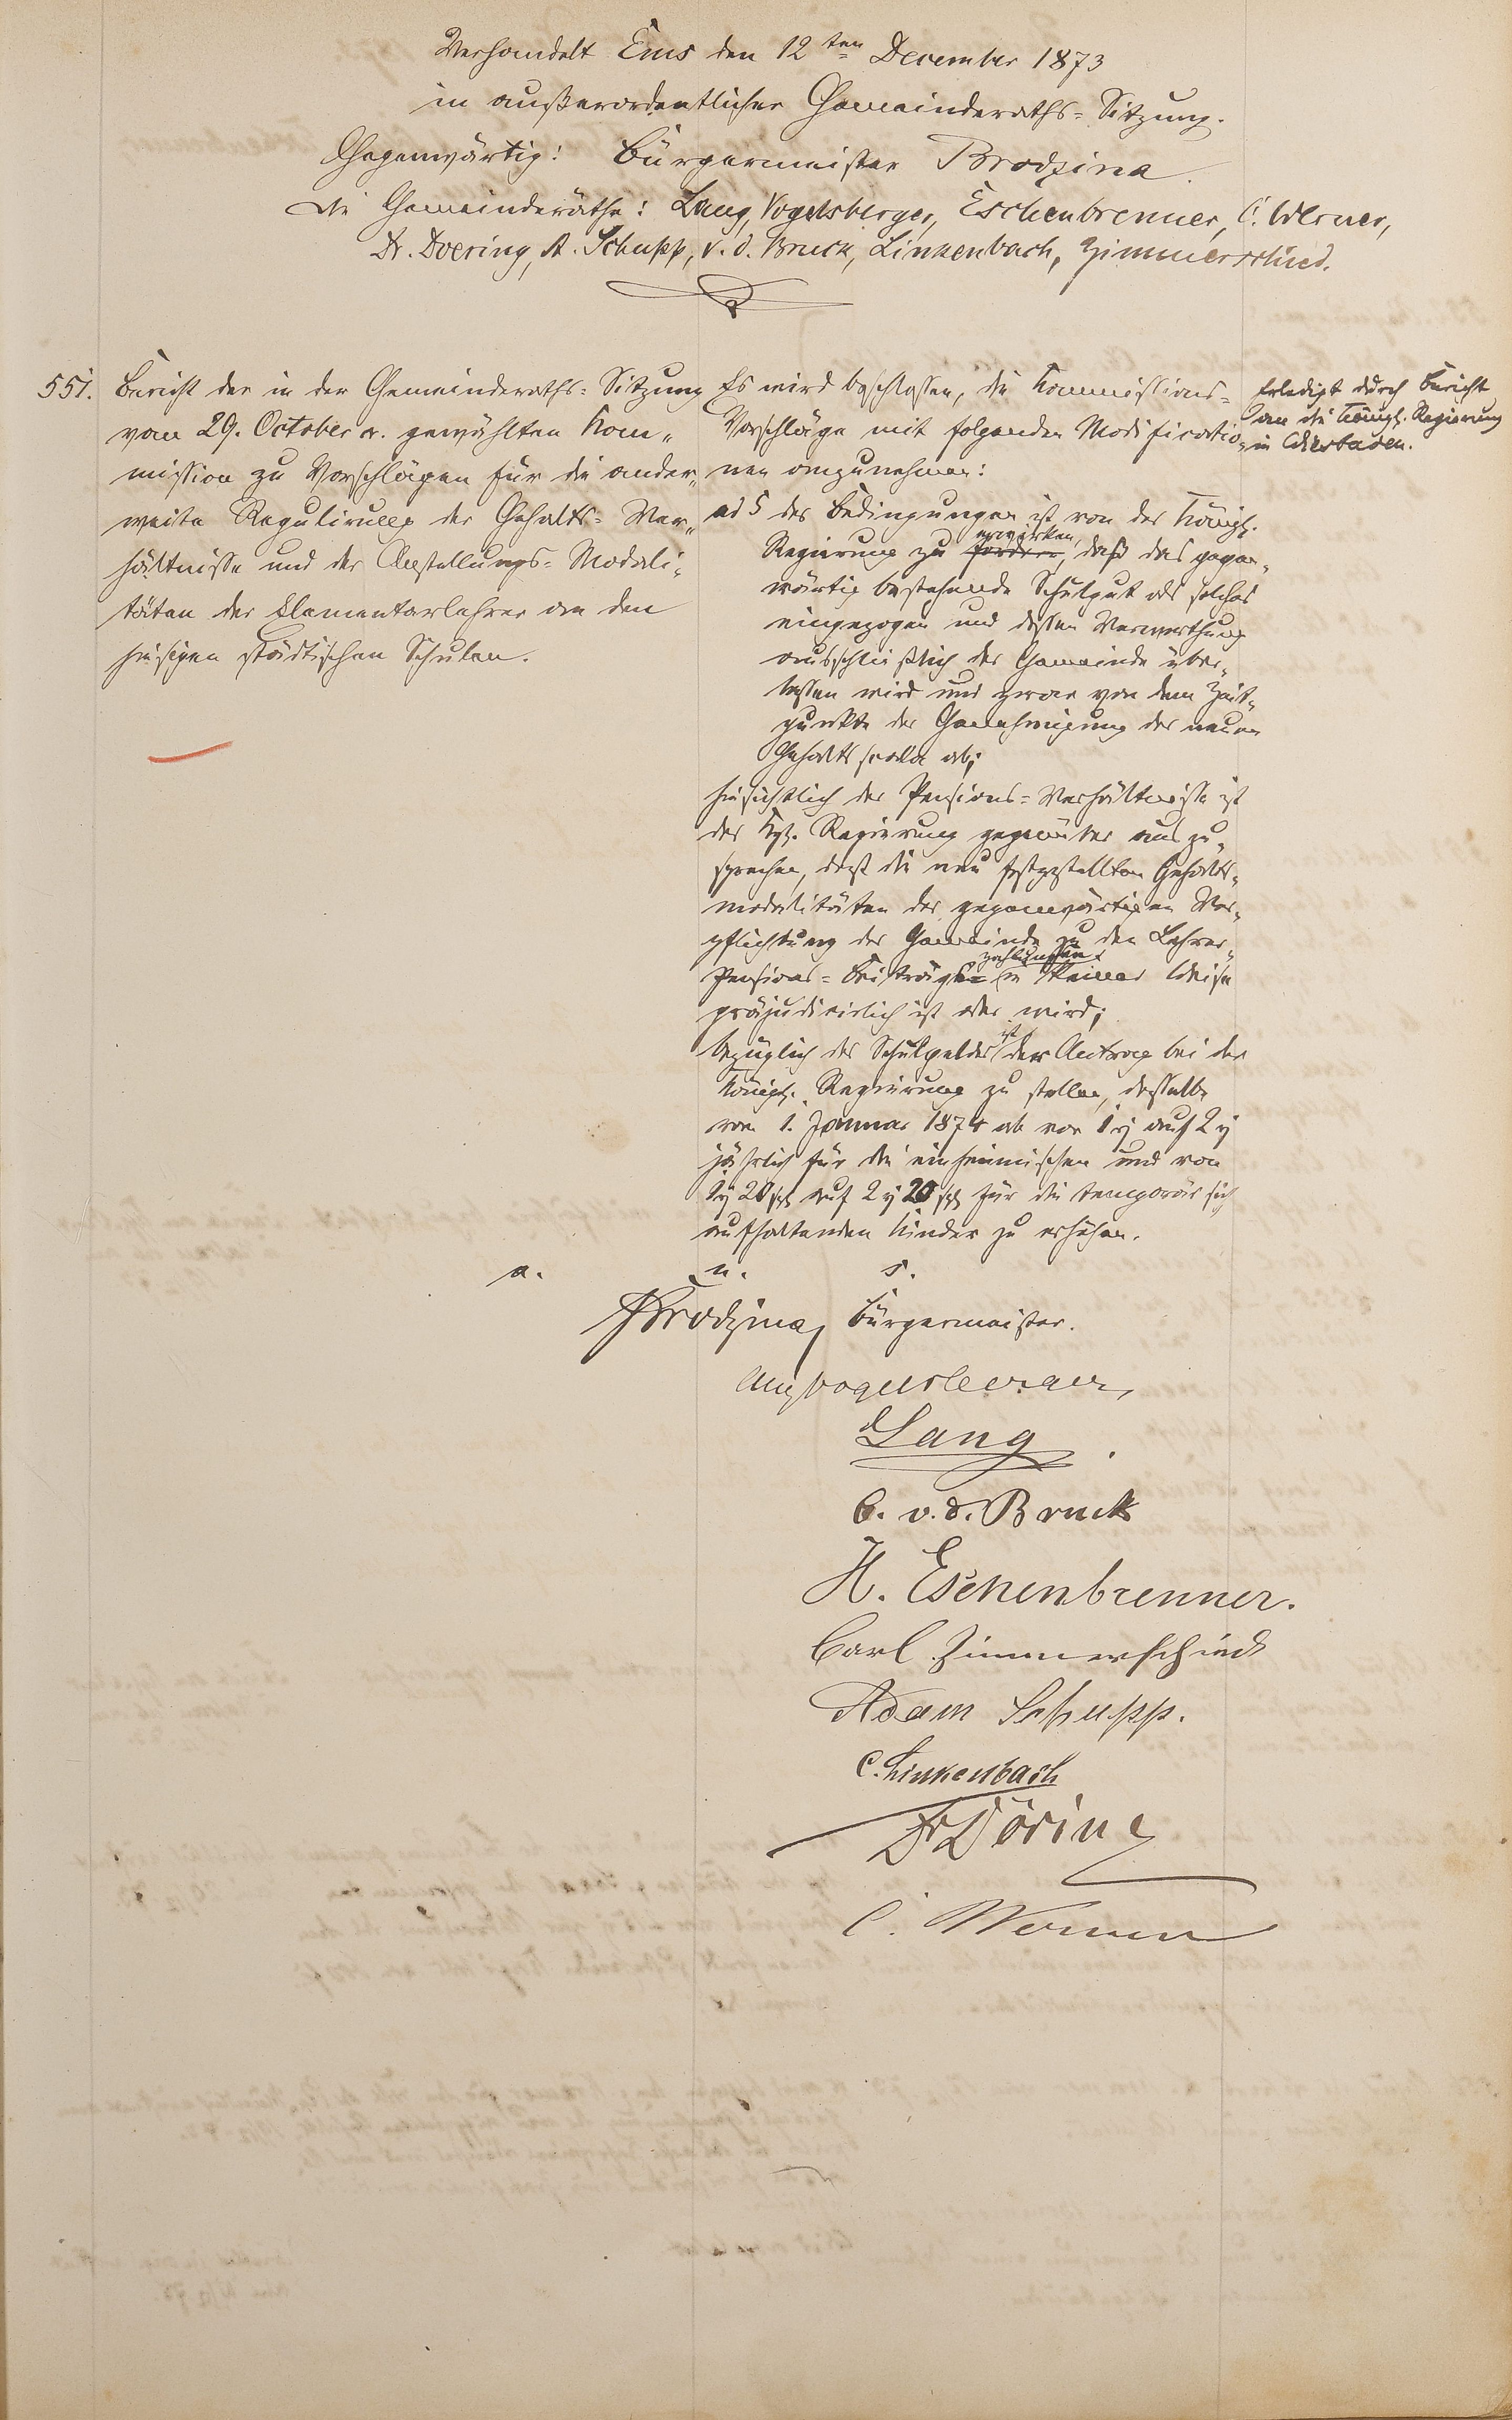 Verhandelt Ems den 12ten December 1873
in außerordentlicher Gemeinderaths-Sitzung.
Gegenwärtig: Bürgermeister Brodzina.
die Gemeinderäthe: Lang, Vogelsberger, Eschenbrenner, C. Werner,
Dr. Doering, A. Schupp, v. d. Bruck, Linkenbach, Zimmerschied.
551. Bericht der in der Gemeinderaths-Sitzung
vom 29. October cr. gewählten Kom-
mission zu Vorschlägen für die ander-
weite Regulirung der Gehalts-Ver-
hältnisse und der Anstellungs-Modali-
täten der Elementarlehrer an den
hiesigen städtischen Schulen.
Es wird beschlossen, die Kommissions-
Vorschläge mit folgenden Modificatio-
nen anzunehmen:
ad 5 der Bedingungen ist von der Königl.
Regierung zu fordern erwirken, daß das gegen-
wärtig bestehende Schulgut als solches
eingezogen und dessen Verwerthung
ausschließlich der Gemeinde über-
lassen wird und zwar von dem Zeit-
punkte der Genehmigung der neuen
Gehaltsscala ab;
hinsichtlich der Pensions-Verhältnisse ist
der Kgl. Regierung gegenüber auszu-
sprechen, daß die neu festgestellten Gehalts-
modalitäten der gegenwärtigen Ver-
pflichtung der Gemeinde zu den Lehrer-
Pensions-Beiträgen in keiner Weise
präjudicirlich ist oder wird;
bezüglich des Schulgeldes ist der Antrag bei der
Königl. Regierung zu stellen, dasselbe
vom 1. Januar 1874 ab von 1 auf 2
jährlich für die einheimischen und von
1 20 auf 2 20 für die temporär sich
aufhaltenden Kinder zu erhöhen.
Erledigt durch Bericht
an die Königl. Regierung
in Wiesbaden.
a. u. s.
Brodzina, Bürgermeister.
Aug Vogelsberger,
Lang
C. v. d. Bruck
H. Eschenbrenner.
Carl Zimmerschied
Adam Schupp.
C. Linkenbach
Dr Döring
C. Werner